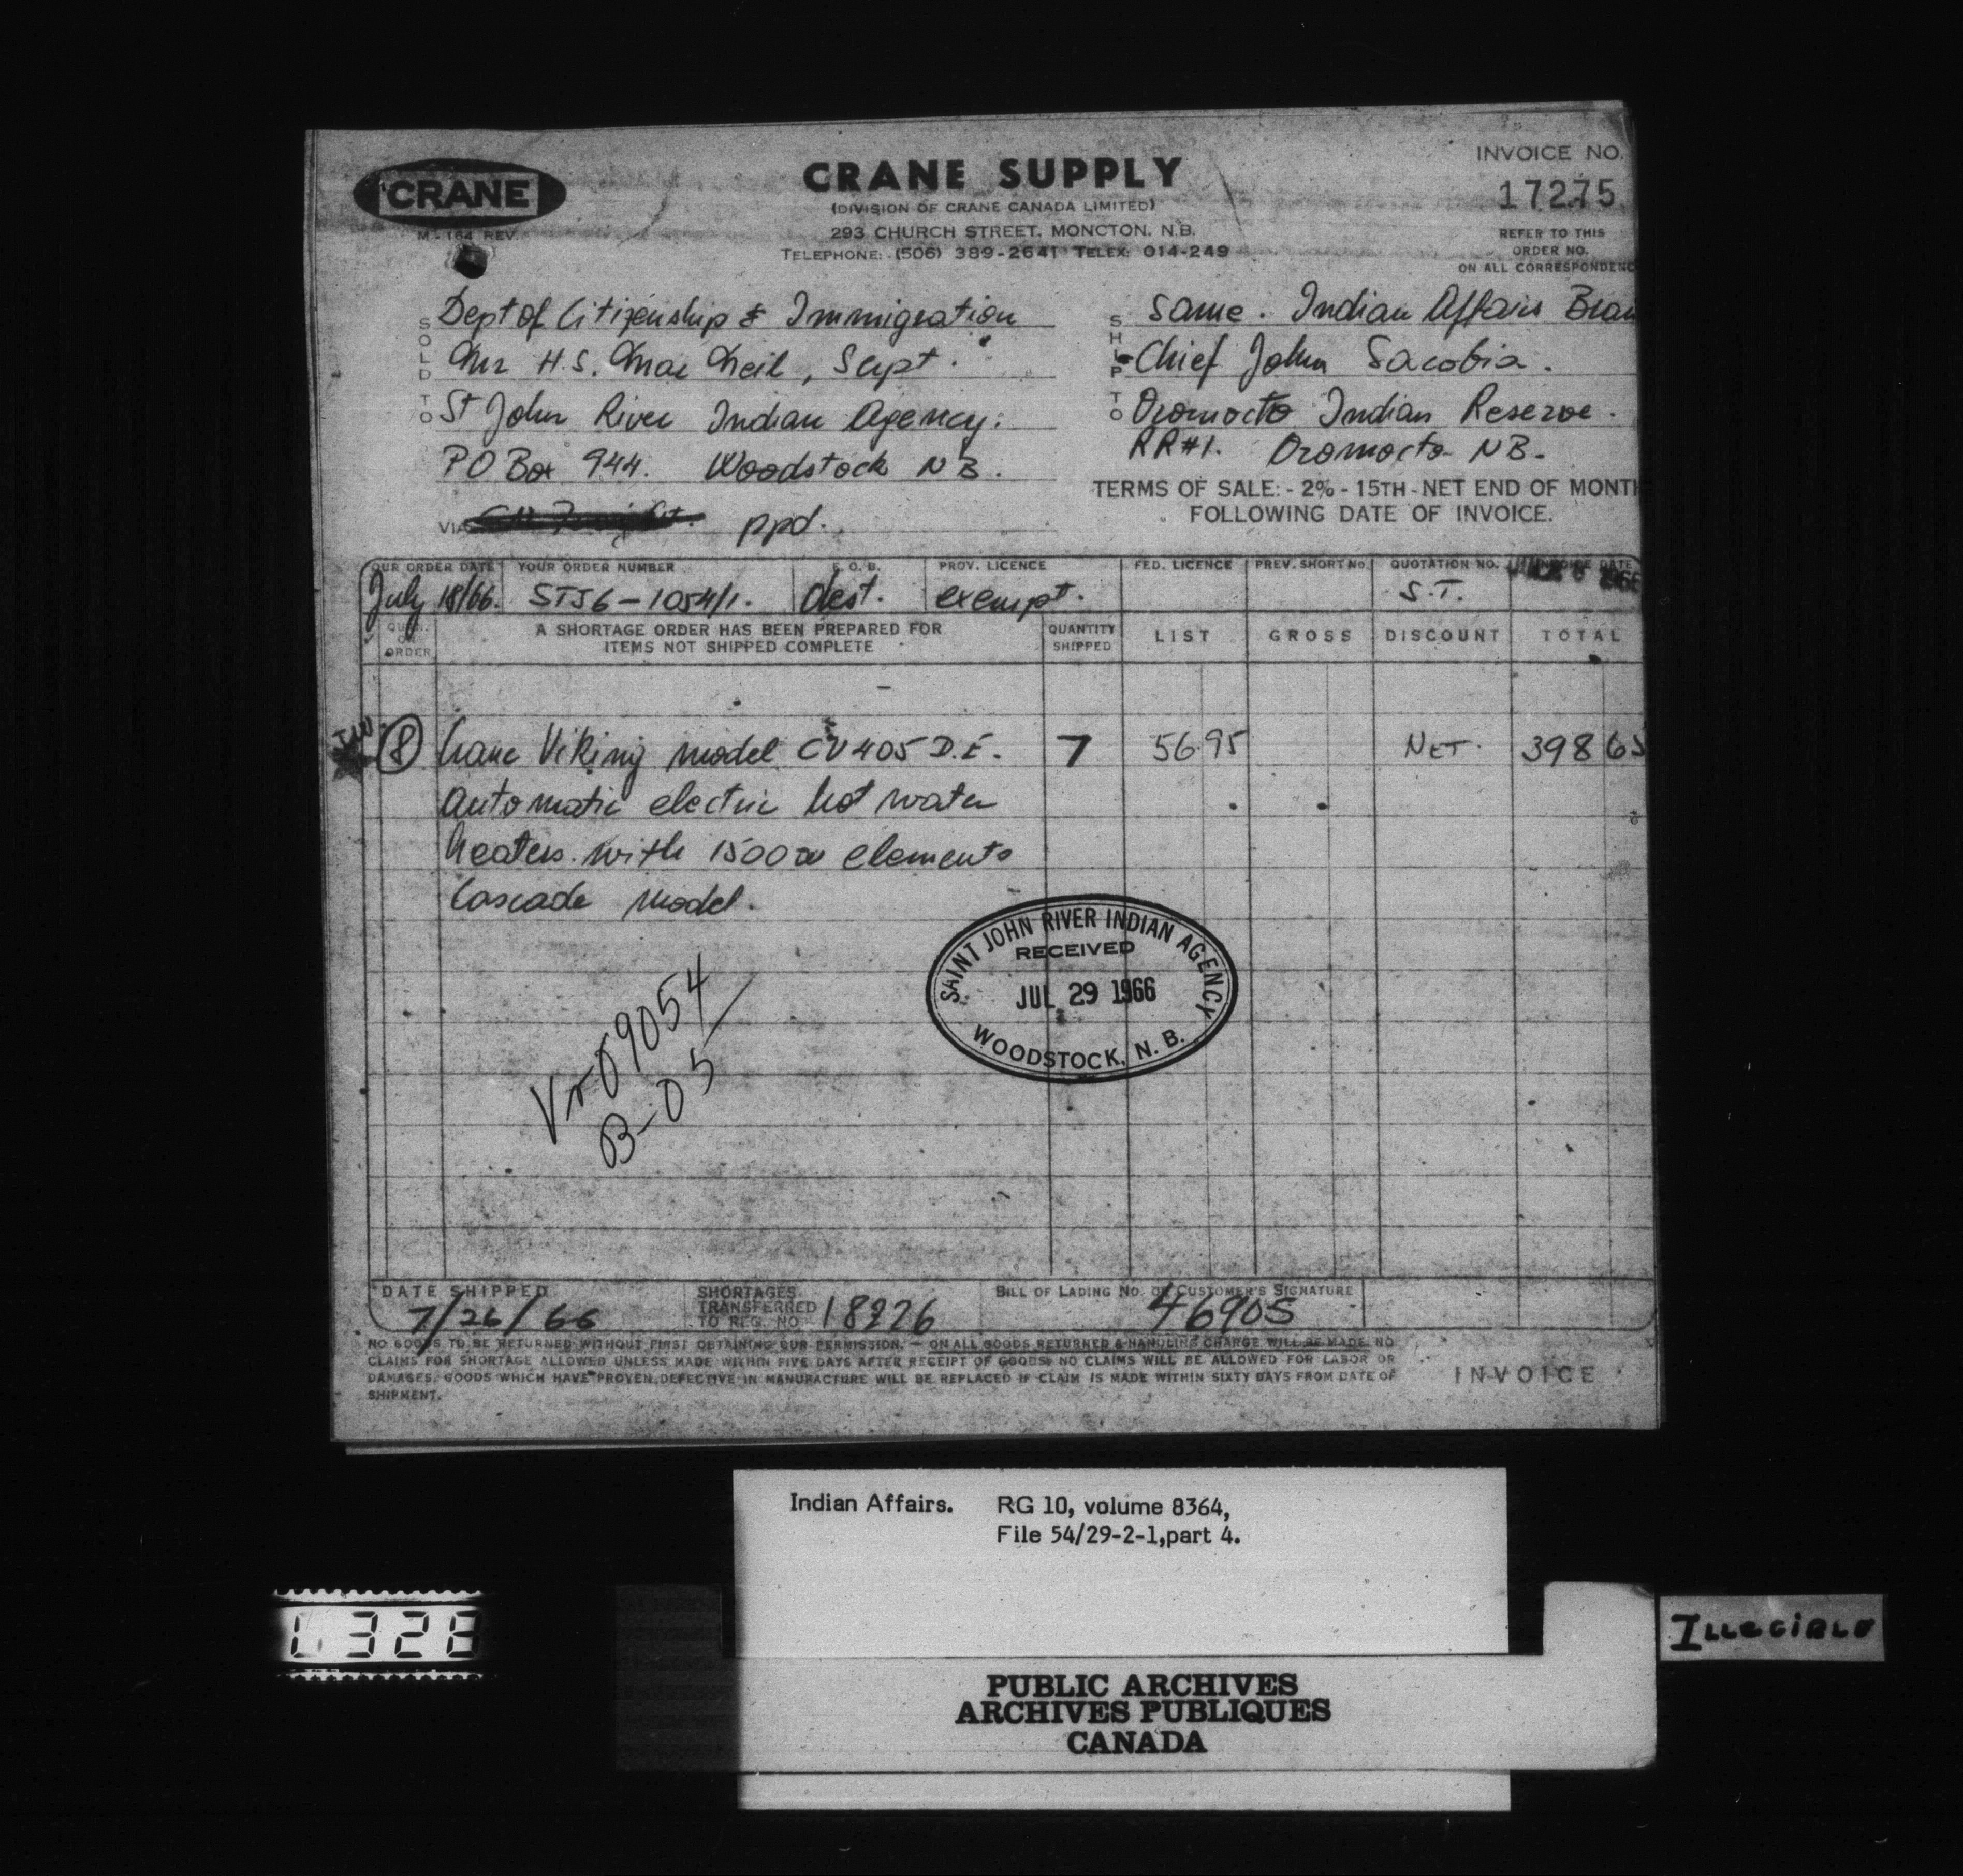 CRANE
M-164 REV.
CRANE SUPPLY
(DIVISION OF CRANE CANADA LIMITED)
293 CHURCH STREET, MONCTON, N.B.
TELEPHONE: (506) 389-2641 TELEX: 014-249
INVOICE NO.
17275
REFER TO THIS
ORDER NO.
ON ALL CORRESPONDENC
SOLD TO
Dept of Citizenship & Immigration
Mr H.S. MacNeil, Supt.
St John River Indian Agency.
PO Box 944. Woodstock NB.
VIA ppd.
SHIP TO
Same. Indian Affairs Bran
Chief John Sacobia.
Oromocto Indian Reserve.
RR#1. Oromocto NB.
TERMS OF SALE: - 2% - 15TH - NET END OF MONTH
FOLLOWING DATE OF INVOICE.
OUR ORDER DATE YOUR ORDER NUMBER F.O.B. PROV. LICENCE FED. LICENCE PREV. SHORT No. QUOTATION NO. INVOICE DATE
July 18/66. STJ6-1054/1. dest. exempt. S.T.
QUAN. ON ORDER
A SHORTAGE ORDER HAS BEEN PREPARED FOR
ITEMS NOT SHIPPED COMPLETE
QUANTITY SHIPPED LIST GROSS DISCOUNT TOTAL
8 Crane Viking model CV405 D.E. 7 56.95 NET. 398 65
automatic electric hot water
heaters with 1500 w elements
Cascade model.
SAINT JOHN RIVER INDIAN AGENCY
RECEIVED
JUL 29 1966
WOODSTOCK, N. B.
Vr 09054
B-05
DATE SHIPPED
7/26/66
SHORTAGES
TRANSFERRED
TO REG. NO. 18226
BILL OF LADING NO. OR CUSTOMER'S SIGNATURE
46905
NO GOODS TO BE RETURNED WITHOUT FIRST OBTAINING OUR PERMISSION. — ON ALL GOODS RETURNED A HANDLING CHARGE WILL BE MADE. NO
CLAIMS FOR SHORTAGE ALLOWED UNLESS MADE WITHIN FIVE DAYS AFTER RECEIPT OF GOODS. NO CLAIMS WILL BE ALLOWED FOR LABOR OR
DAMAGES. GOODS WHICH HAVE PROVEN DEFECTIVE IN MANUFACTURE WILL BE REPLACED IF CLAIM IS MADE WITHIN SIXTY DAYS FROM DATE OF
SHIPMENT.
INVOICE
Indian Affairs. RG 10, volume 8364,
File 54/29-2-1,part 4.
ILLEGIBLE
PUBLIC ARCHIVES
ARCHIVES PUBLIQUES
CANADA